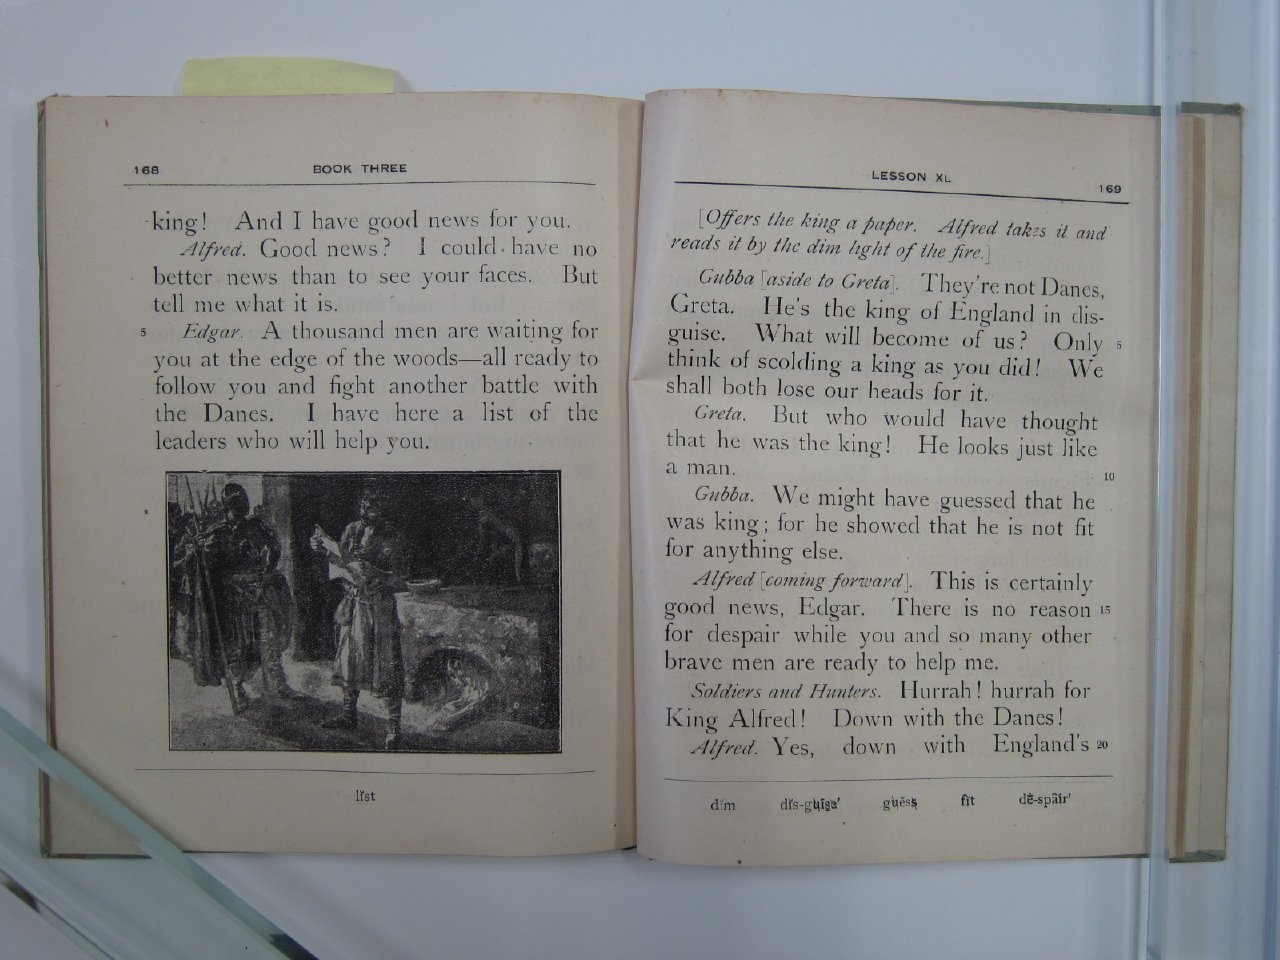 168
BOOK THREE
king! And I have good news for you.
Alfred. Good news? I could have no
better news than to see your faces. But
tell me what it is.
5 Edgar. A thousand men are waiting for
you at the edge of the woods—all ready to
follow you and fight another battle with
the Danes. I have here a list of the
leaders who will help you.
lĭst
LESSON XL
169
[Offers the king a paper. Alfred takes it and
reads it by the dim light of the fire.]
Gubba [aside to Greta]. They're not Danes,
Greta. He's the king of England in dis-
guise. What will become of us? Only 5
think of scolding a king as you did! We
shall both lose our heads for it.
Greta. But who would have thought
that he was the king! He looks just like
a man. 10
Gubba. We might have guessed that he
was king; for he showed that he is not fit
for anything else.
Alfred [coming forward]. This is certainly
good news, Edgar. There is no reason 15
for despair while you and so many other
brave men are ready to help me.
Soldiers and Hunters. Hurrah! hurrah for
King Alfred! Down with the Danes!
Alfred. Yes, down with England's 20
dĭm dĭs-guīse′ guĕss fĭt dē̍-spâir′